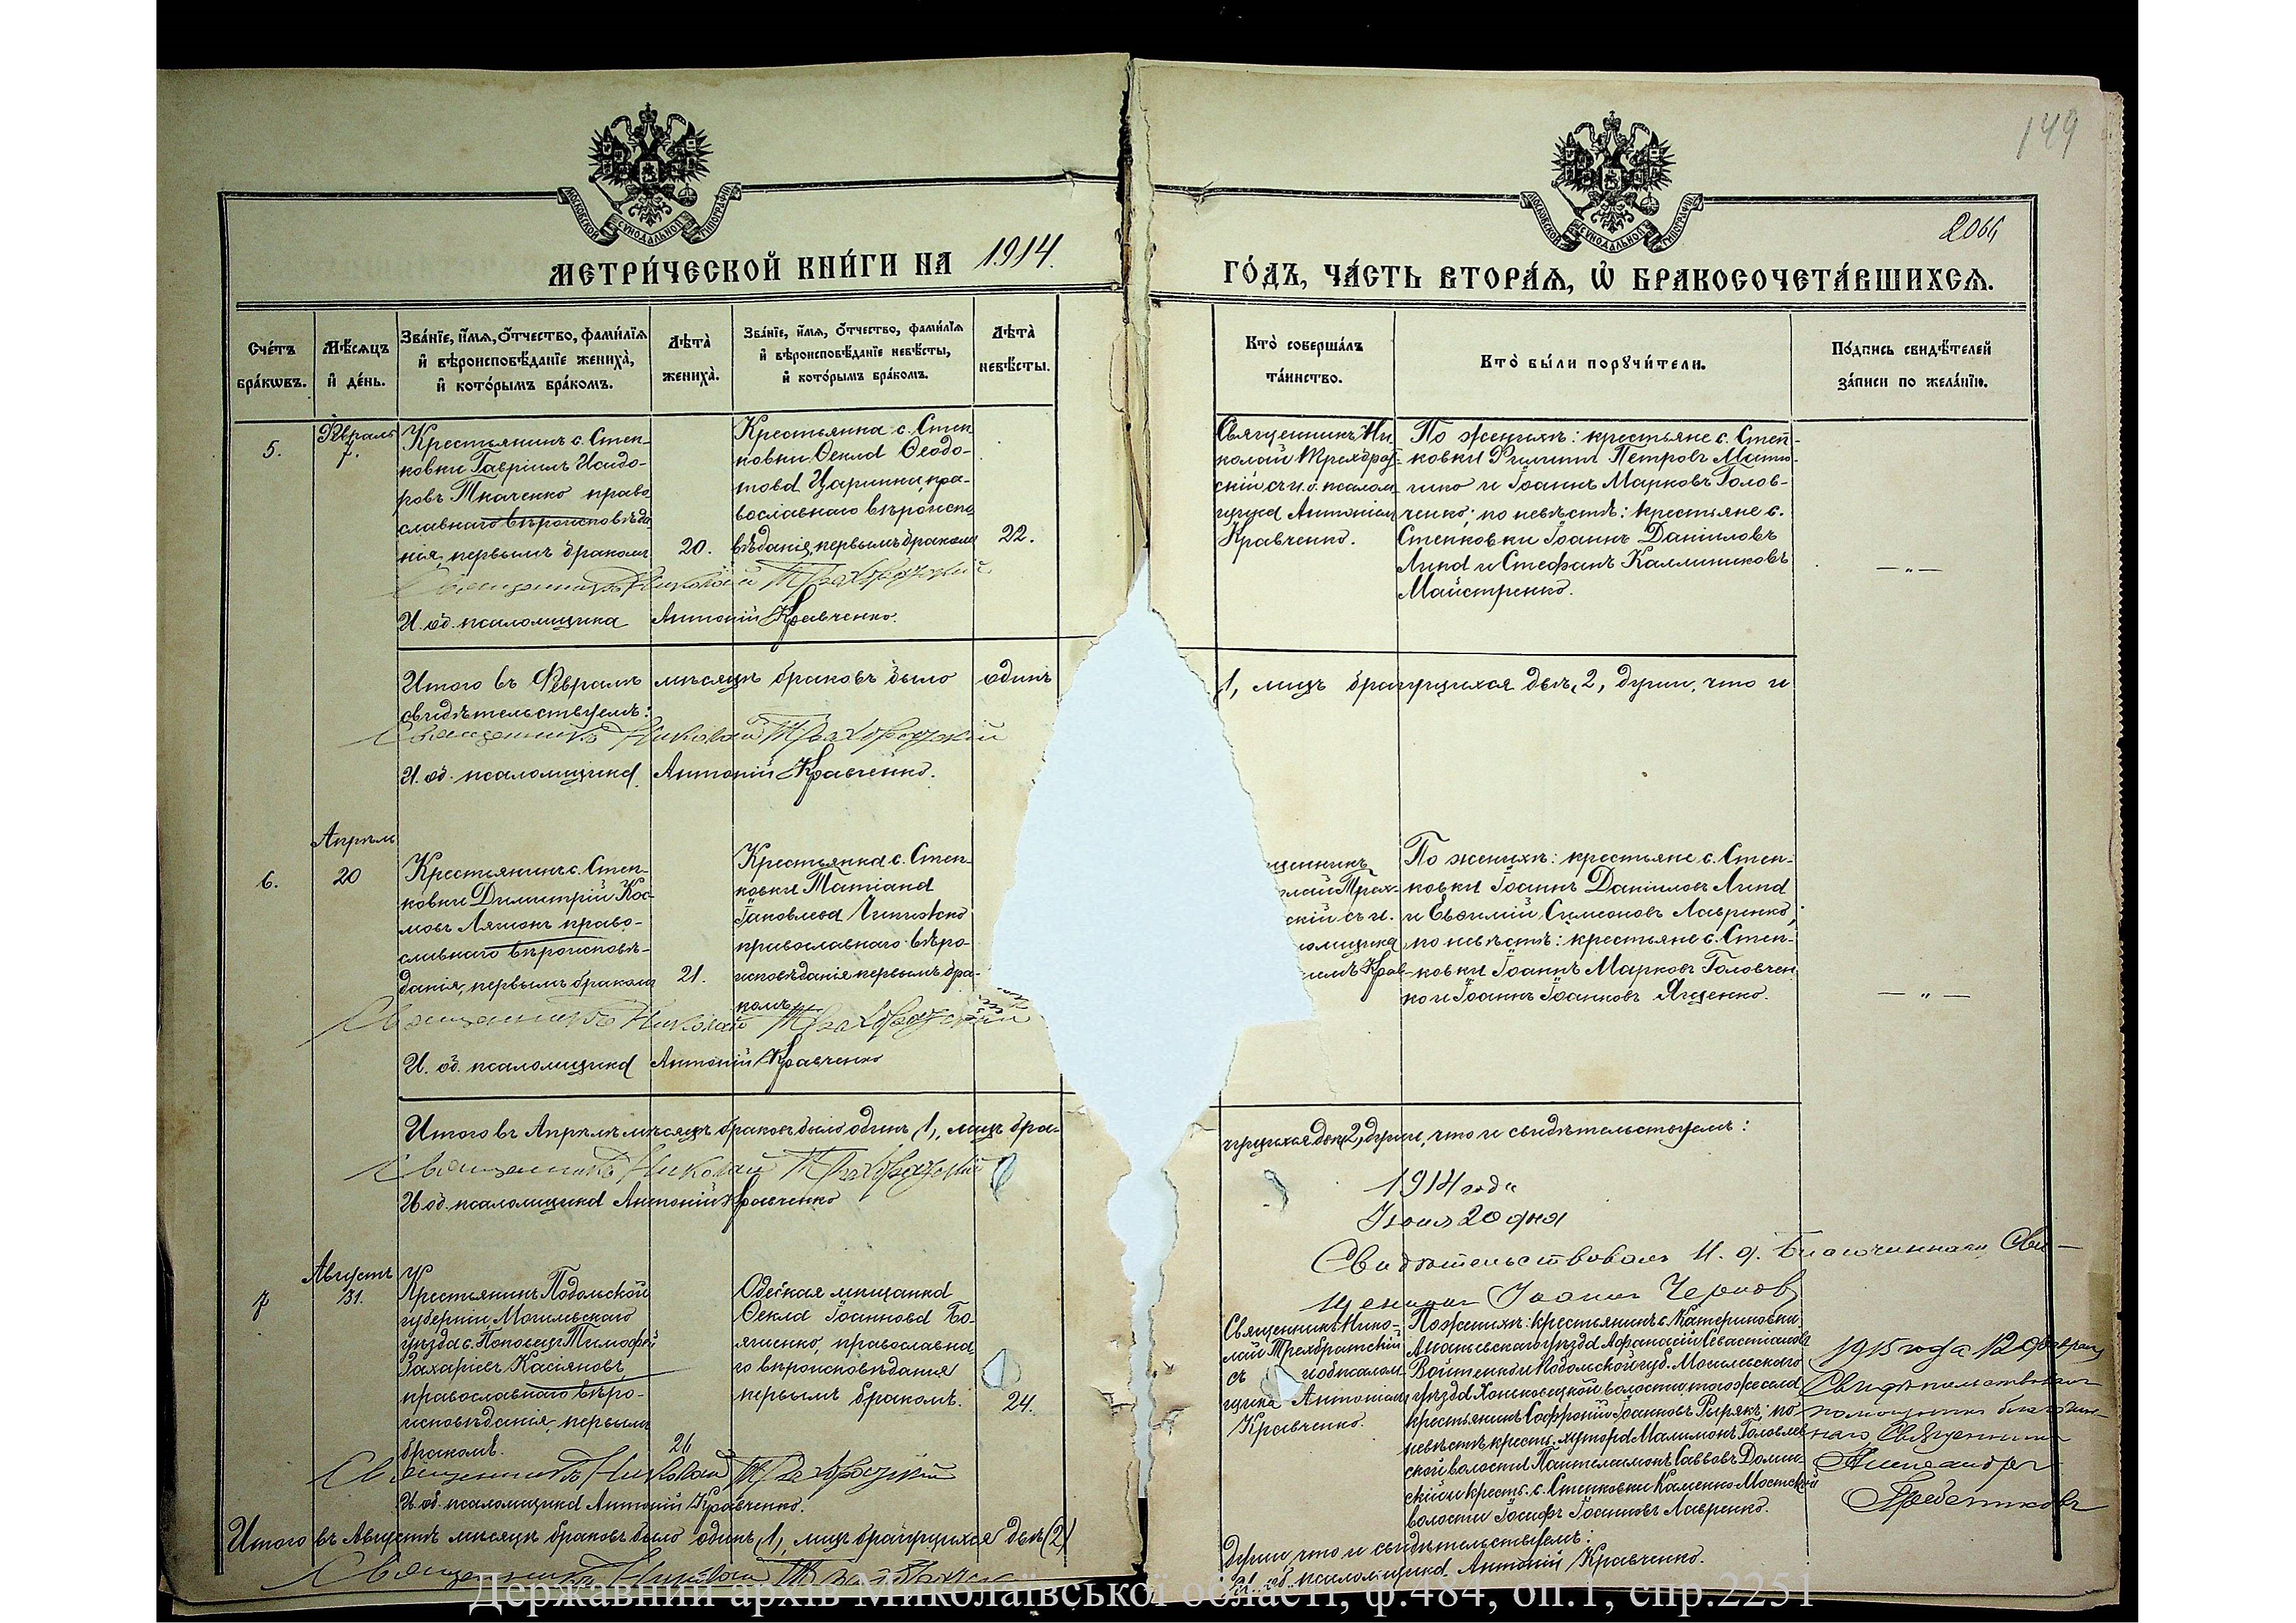 149
2066
МОСКОВСКОЙ СѴНОДАЛЬНОЙ ТИПОГРАФІИ
МОСКОВСКОЙ СѴНОДАЛЬНОЙ ТИПОГРАФІИ
МЕТРИ́ЧЕСКОЙ КНИ́ГИ НА 1914.
ГО́ДЪ, ЧА́СТЬ ВТОРА́Ѧ, Ѡ҆ БРАКОСОЧЕТА́ВШИХСѦ.
Сче́тъ бра́кѡвъ.
Мѣ́сѧцъ и҆ де́нь.
Зва́нїе, и҆́мѧ, ѻ҆́тчество, фами́лїѧ и҆ вѣроисповѣ́данїе жениха̀, и҆ кото́рымъ бра́комъ.
Лѣ́та̀ жениха̀.
Зва́нїе, и҆́мѧ, ѻ҆́тчество, фами́лїѧ и҆ вѣроисповѣ́данїе невѣ́сты, и҆ кото́рымъ бра́комъ.
Лѣ́та̀ невѣ́сты.
Кто̀ соверша́лъ та́инство.
Кто̀ бы́ли порꙋчи́тели.
По́дпись свидѣ́телей за́писи по жела́нїю.
5.
Февраль
7.
Крестьянинъ с. Степ-
ковки Гавріилъ Исидо-
ровъ Ткаченко право
славнаго вѣроисповѣда
нія, первымъ бракомъ
20.
Крестьянка с. Степ
ковки Ѳекла Ѳеодо-
това Царинна, пра-
вославнаго вѣроиспо
вѣданія, первымъ бракомъ
22.
Священникъ Ни
колай Трехбрат-
скій съ и. о. псалом
щика Антоніем
Кравченко.
По женихѣ: крестьяне с. Степ-
ковки Филиппъ Петровъ
и Іоаннъ Марковъ Голов-
ченко; по невѣстѣ: крестьяне с.
Степковки Іоаннъ Даніиловъ
Липа и Стефанъ Каллиниковъ
Майстренко.
— „ —
Священникъ Николай Трехбратскій
И. об. псаломщика Антоній Кравченко.
Итого въ Февралѣ мѣсяцѣ браковъ было одинъ
1, лицъ брачущихся двѣ, 2, души, что и
свидѣтельствуемъ:
Священникъ Николай Трехбратскій
И. об. псаломщика Антоній Кравченко.
6.
Апрѣль
20
Крестьянинъ с. Степ-
ковки Димитрій Кос-
мовъ право-
славнаго вѣроисповѣ-
данія, первымъ бракомъ
21.
Крестьянка с. Степ-
ковки Татіана
Іаковлева
православнаго вѣро-
исповѣданія первымъ бра-
комъ
щенникъ
лай Трех-
скій съ и.
ломщика
іемъ Крав-
По женихѣ: крестьяне с. Степ-
ковки Іоаннъ Даніиловъ Липа
и Евѳимій Симеоновъ Лавренко,
по невѣстѣ: крестьяне с. Степ-
ковки Іоаннъ Марковъ Головчен
ко и Іоаннъ Іоанновъ Яценко.
— „ —
Священникъ Николай Трехбратскій
И. об. псаломщика Антоній Кравченко
Итого въ Апрѣлѣ мѣсяцѣ браковъ было одинъ, 1, лицъ бра-
чущихся двѣ, 2, души, что и свидѣтельствуемъ:
Священникъ Николай Трехбратскій
И об. псаломщика Антоній Кравченко
1914 года
Іюня 20 дня
Свидѣтельствовалъ И. д. Благочиннаго, Свя-
щенникъ Іоаннъ
7
Августъ
31.
Крестьянинъ Подольской
губерніи, Могилевскаго
уѣзда с. Поповецъ Тимоѳей
Захаріевъ Касіяновъ
православнаго вѣро-
исповѣданія, первымъ
бракомъ.
26
Одесская мѣщанка
Ѳекла Іоаннова Бо-
яченко, православна
го вѣроисповѣданія
первымъ бракомъ.
24.
Священникъ Нико-
лай Трехбратскій
съ и об псалом-
щика Антоніемъ
Кравченко.
По женихѣ: крестьянинъ с. Катериновки
Ананьевскаго уѣзда Аѳанасій Севастіановъ
Войтенко и Подольской губ. Могилевскаго
уѣзда волости, того же села
крестьянинъ Софроній Іоанновъ; по
невѣстѣ крест. хутора
ской волости Пантелеимонъ Савовъ
скій и крест. с. Степковки Каменно-Мостской
волости Іосифъ Іоанновъ Лавренко.
1915 года 12 Февраля
Свидѣтельствовалъ
помощникъ благочин-
наго Священникъ
Александръ
Священникъ Николай Трехбратскій
И. об. псаломщика Антоній Кравченко.
Итого въ Августѣ мѣсяцѣ браковъ было одинъ, 1, лицъ брачущихся двѣ (2)
души, что и свидѣтельствуемъ:
Священникъ Николай Трехбратскій
И. об. псаломщика Антоній Кравченко.
Державний архів Миколаївської області, ф.484, оп.1, спр.2251